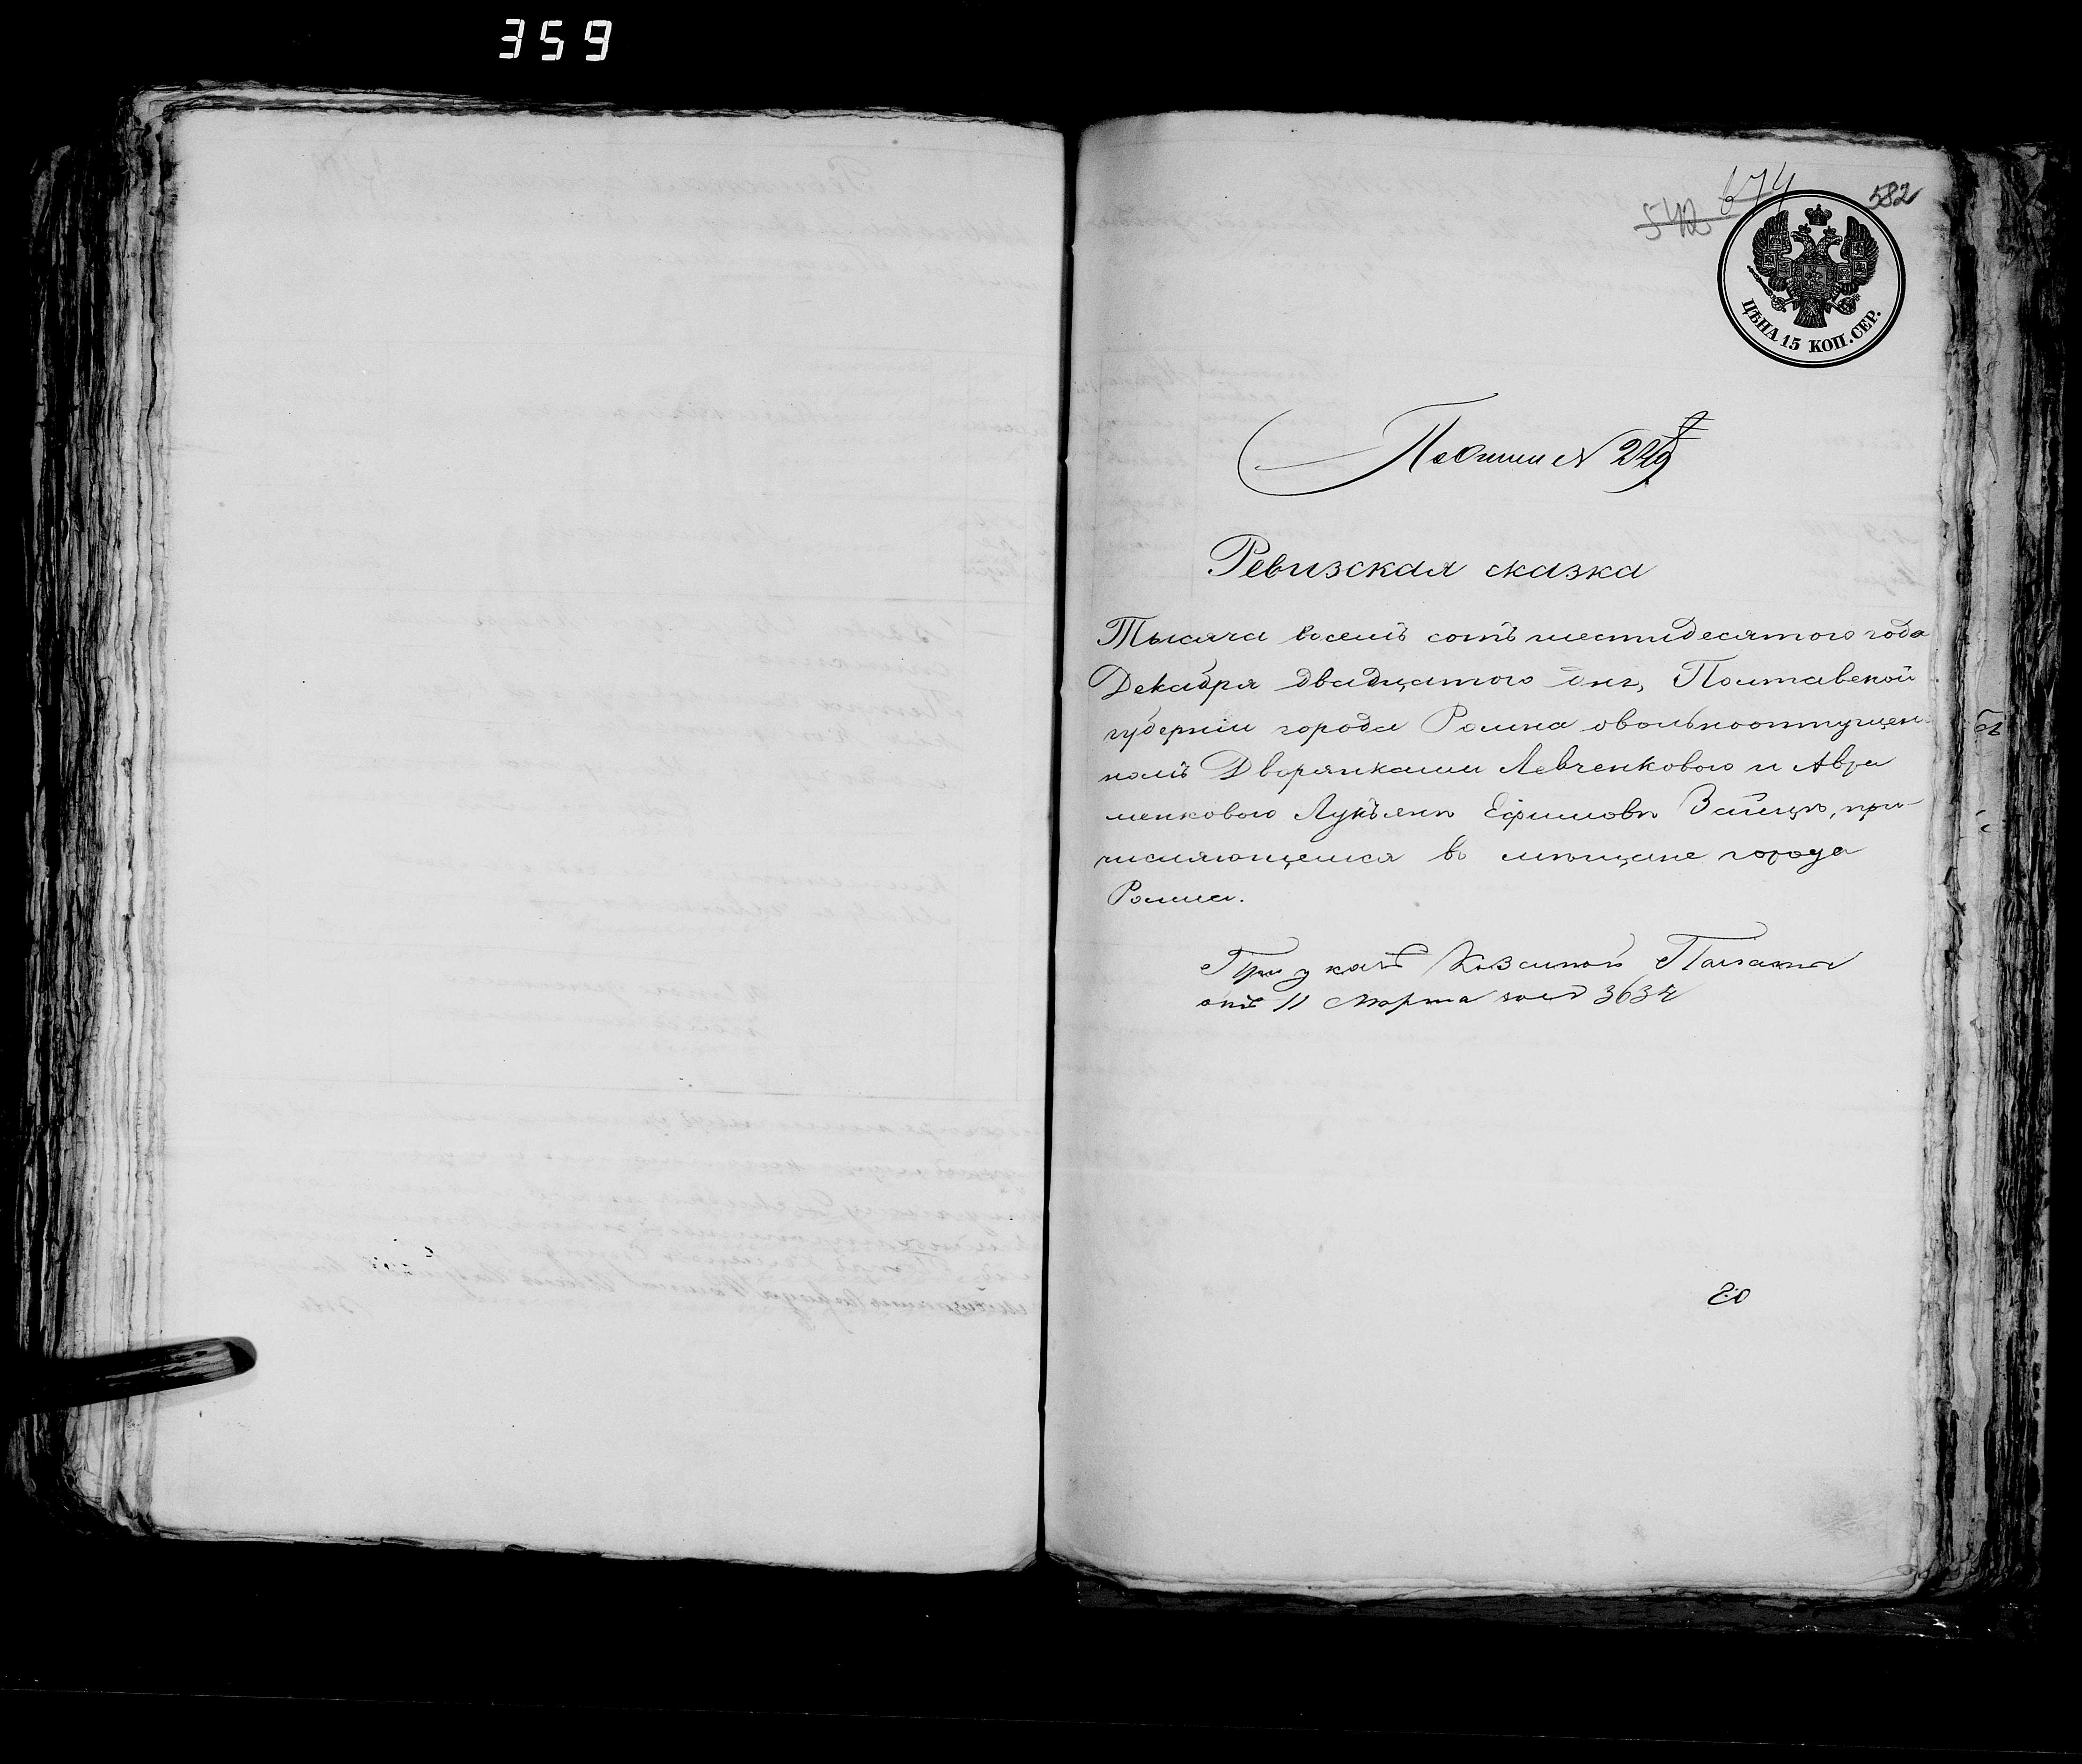 359
674
542
582
ЦѢНА 15 КОП. СЕР.
По описи № 229
Ревизская сказка
Тысяча восемь сотъ шестидесятого года
Декабря двадцатого дня, Полтавской
губерніи города Ромна о вольноотпущен-
номъ Дворянками Левченковою и Авра
менковою Лукьянѣ Ефимовѣ Зайцѣ, при-
числяющемся въ мѣщане города
Ромна.
При указѣ Казенной Палаты
отъ 11 Марта за № 3634